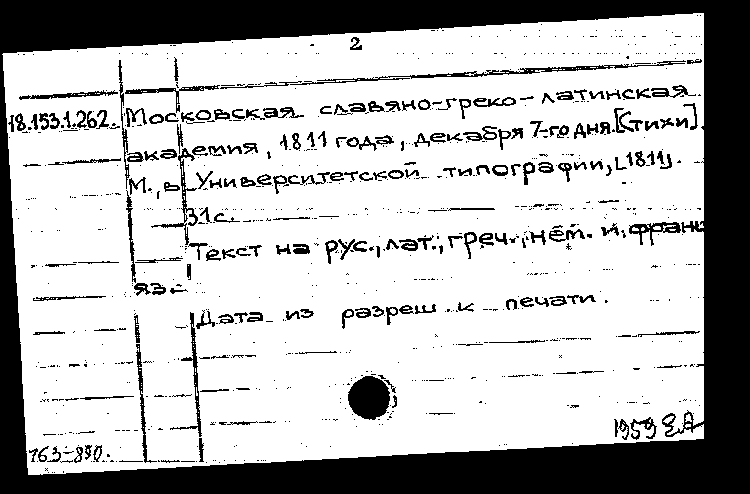 2
18.153.1.262. Московская славяно-греко-латинская
академия, 1811 года, декабря 7-го дня. [Стихи].
М., в Университетской типографии, [1811].
31 с.
Текст на рус., лат., греч., нем. и франц
яз.
Дата из разреш. к печати.
1959
763-890.